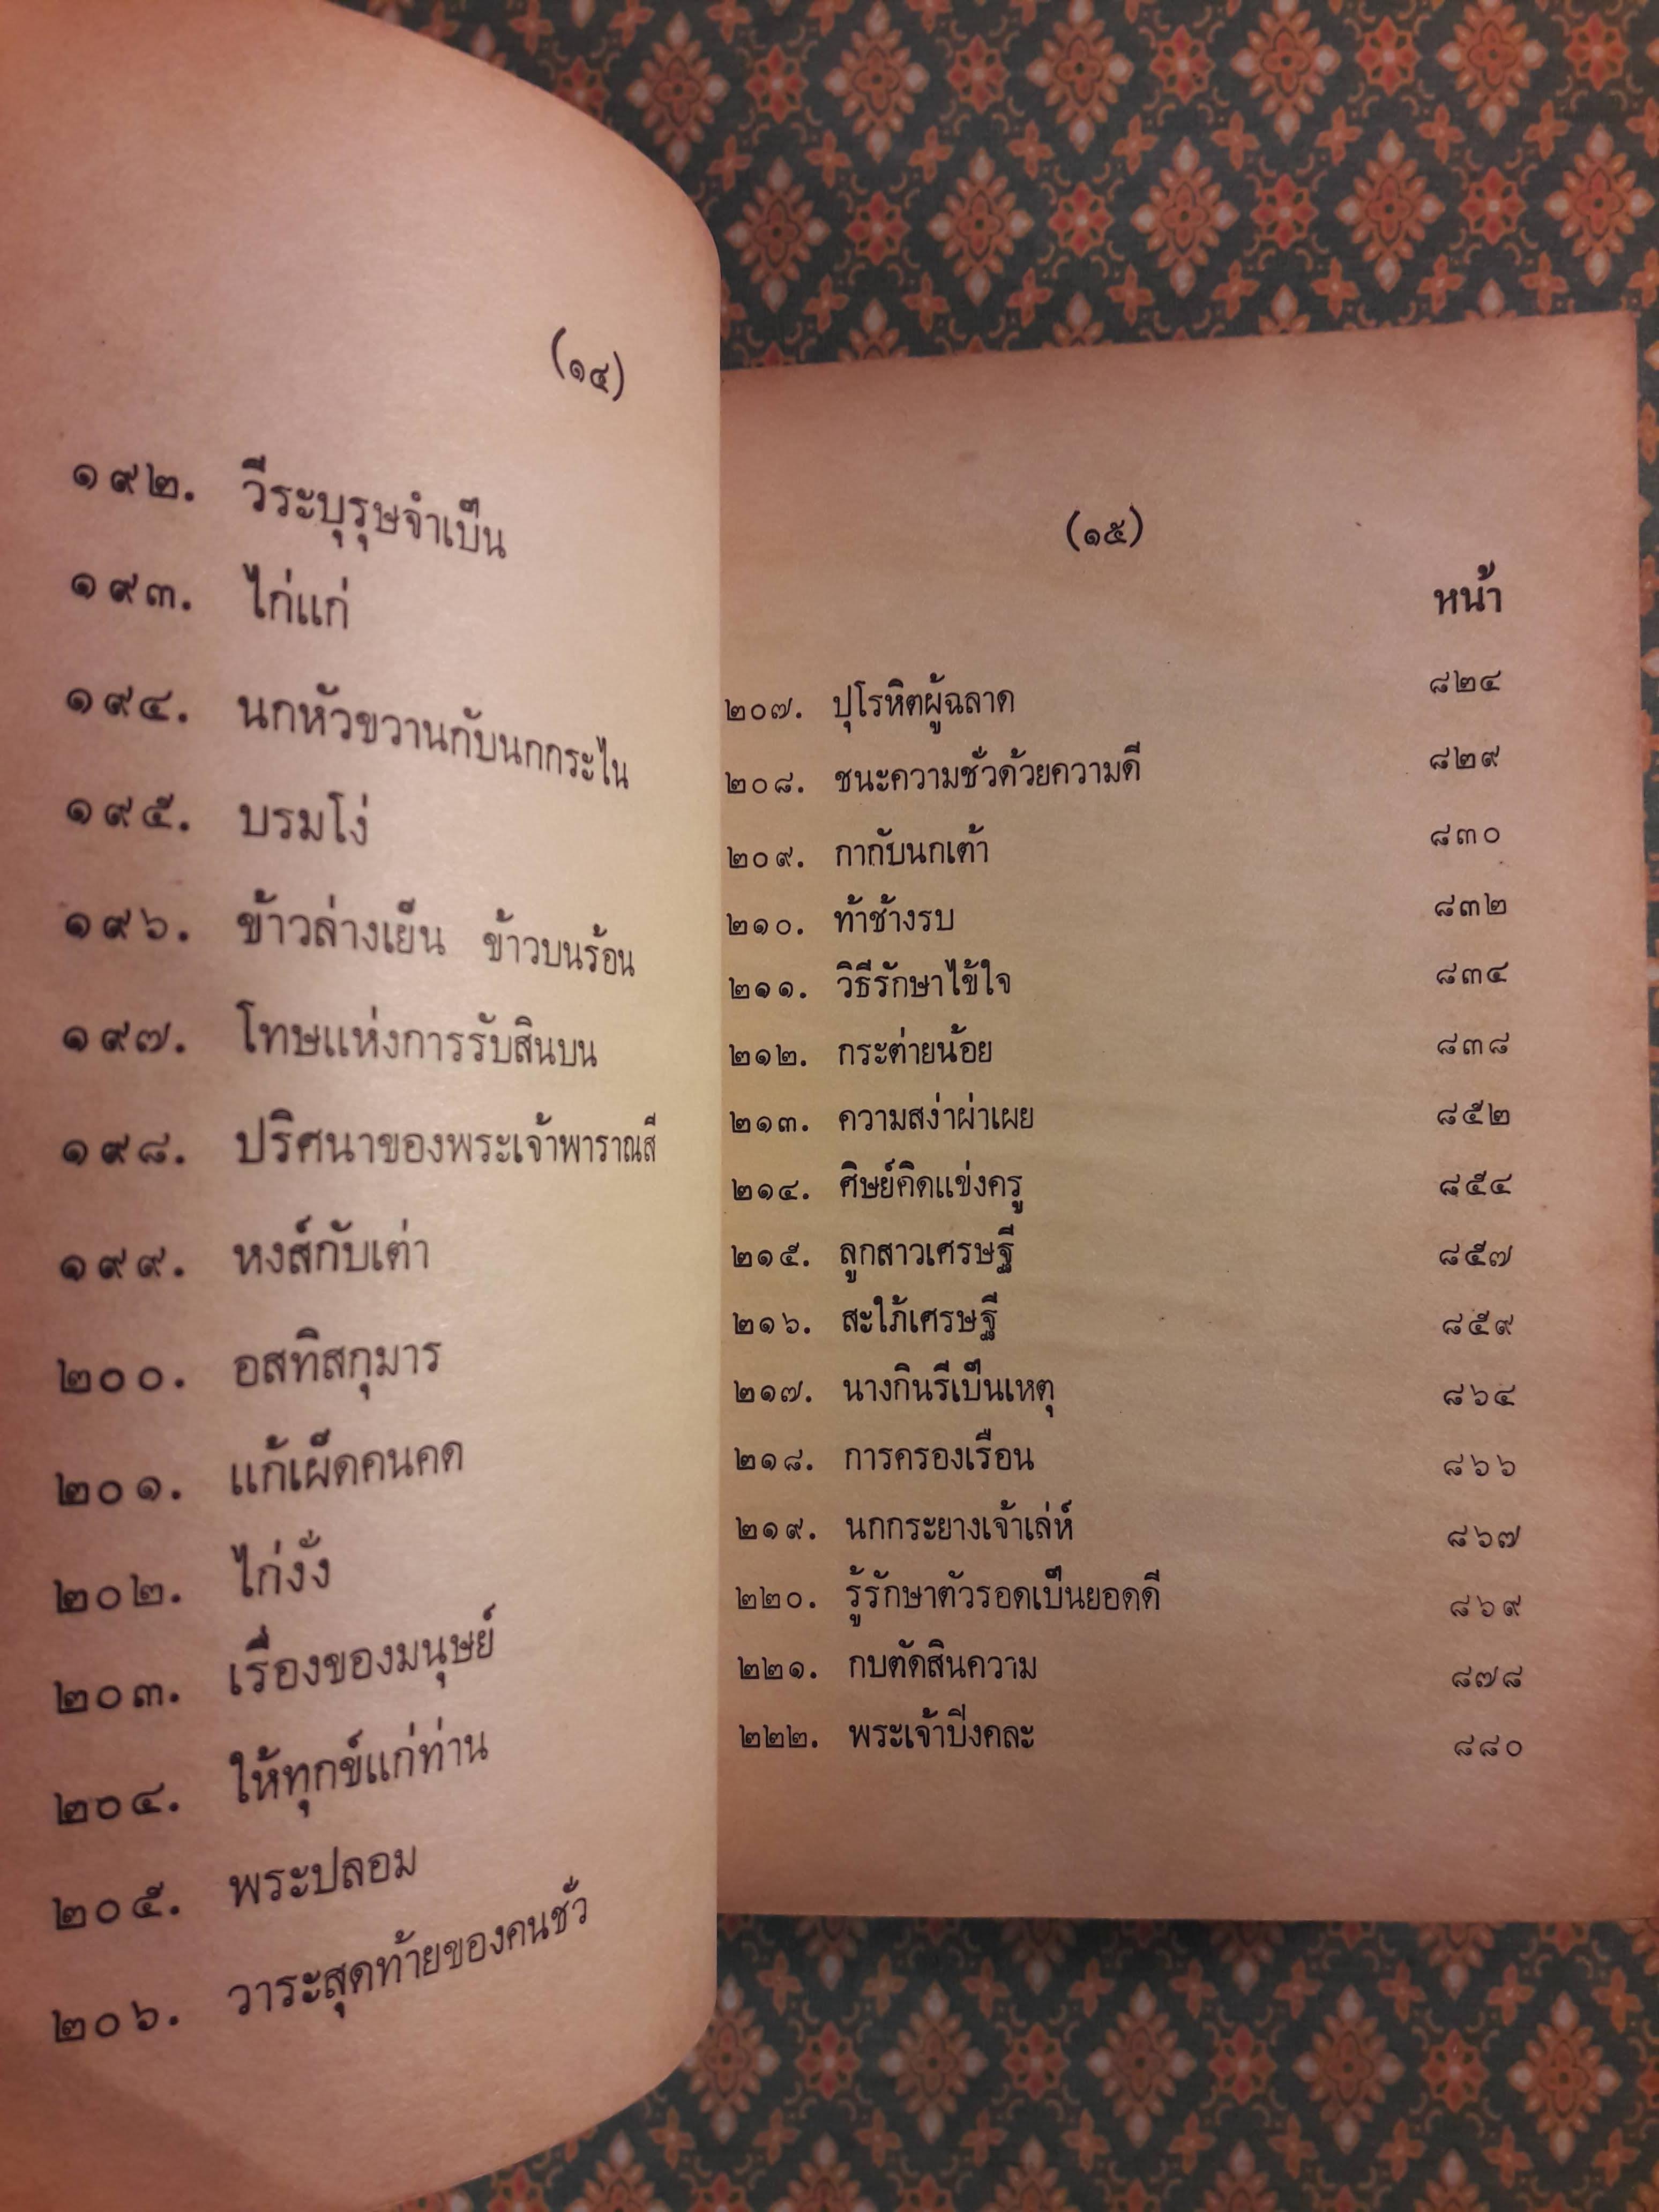 (๑๔)
๑๙๒. วีระบุรุษจำเป็น
๑๙๓. ไก่แก่
๑๙๔. นกหัวขวานกับนกกระไน
๑๙๕. บรมโง่
๑๙๖. ข้าวล่างเย็น ข้าวบนร้อน
๑๙๗. โทษแห่งการรับสินบน
๑๙๘. ปริศนาของพระเจ้าพาราณสี
๑๙๙. หงส์กับเต่า
๒๐๐. อสทิสกุมาร
๒๐๑. แก้เผ็ดคนคด
๒๐๒. ไก่งั่ง
๒๐๓. เรื่องของมนุษย์
๒๐๔. ให้ทุกข์แก่ท่าน
๒๐๕. พระปลอม
๒๐๖. วาระสุดท้ายของคนชั่ว
(๑๕)
หน้า
๒๐๗. ปุโรหิตผู้ฉลาด ๘๒๔
๒๐๘. ชนะความชั่วด้วยความดี ๘๒๙
๒๐๙. กากับนกเต้า ๘๓๐
๒๑๐. ท้าช้างรบ ๘๓๒
๒๑๑. วิธีรักษาไข้ใจ ๘๓๔
๒๑๒. กระต่ายน้อย ๘๓๘
๒๑๓. ความสง่าผ่าเผย ๘๕๒
๒๑๔. ศิษย์คิดแข่งครู ๘๕๔
๒๑๕. ลูกสาวเศรษฐี ๘๕๗
๒๑๖. สะใภ้เศรษฐี ๘๕๙
๒๑๗. นางกินรีเป็นเหตุ ๘๖๔
๒๑๘. การครองเรือน ๘๖๖
๒๑๙. นกกระยางเจ้าเล่ห์ ๘๖๗
๒๒๐. รู้รักษาตัวรอดเป็นยอดดี ๘๖๙
๒๒๑. กบตัดสินความ ๘๗๘
๒๒๒. พระเจ้าปิงคละ ๘๘๐